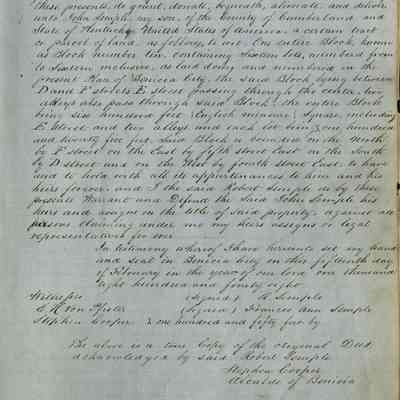 These presents, do grant, donate, bequeath, alienate, and deliver
unto John Semple, my son, of the County of Cumberland and
State of Kentucky United States of America, a certain tract
or parcel of land, as follows to wit: One entire Block known
as Block number ten, containing sixteen lots, numbered from
to sixteen inclusive, as laid down and numbered in the
present Plan of Benicia City, the said Block lying between
D and F streets, E street passing through the center, two
alleys also pass through said Block, the entire Block
being six hundred feet (English measure) Square, including
E Street and two alleys, and each lot being one hundred
and twenty five feet, Said Block is bounded on the North
by F street on the East by fifth street East on the South
by D street and on the West by fourth street East, to have
and to hold with all its appurtenances to him and his
heirs forever, and I the said Robert Semple do by these
presents Warrant and Defend the Said John Semple his
heirs and assigns in the title of said property, against all
persons claiming under me my heirs assigns or legal
representatives for ever
In testimony whereof I have hereunto set my hand
and seal in Benicia City on this fifteenth day
of February in the year of our lord one thousand
eight hundred and forty eight
Witnesses (Signed) R. Semple
(Signed) Frances Ann Semple
Stephen Cooper & one hundred and fifty four by
The above is a true Copy of the original Deed
acknowledged by said Robert Semple
Stephen Cooper
Alcalde of Benicia